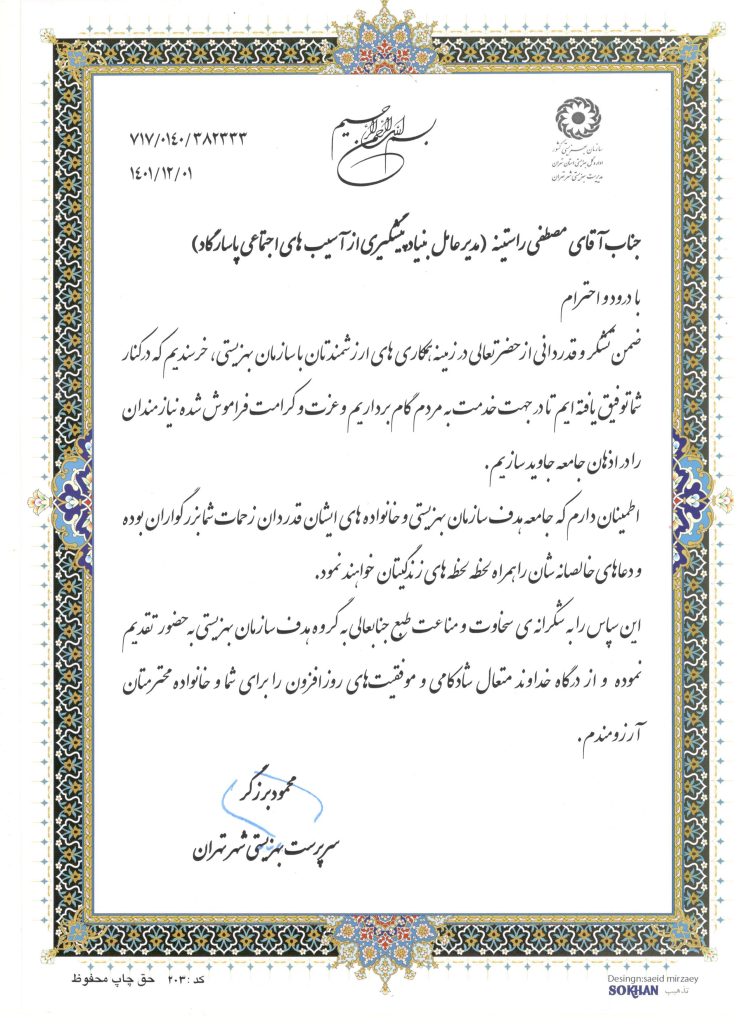 بسم الله الرحمن الرحیم
سازمان بهزیستی کشور
اداره کل بهزیستی استان تهران
مدیریت بهزیستی شهر تهران
۷۱۷/۰۱۴۰/۳۸۲۳۳۳
۱۴۰۱/۱۲/۰۱
جناب آقای مصطفی راستینه (مدیرعامل بنیاد پیشگیری از آسیب های اجتماعی پاسارگاد)
با درود و احترام
ضمن تشکر و قدردانی از حضرتعالی در زمینه همکاری های ارزشمندتان با سازمان بهزیستی، خرسندیم که در کنار
شما توفیق یافته ایم تا در جهت خدمت به مردم گام برداریم و عزت و کرامت فراموش شده نیازمندان
را در اذهان جامعه جاوید سازیم.
اطمینان دارم که جامعه هدف سازمان بهزیستی و خانواده های ایشان قدردان زحمات شما بزرگواران بوده
و دعاهای خالصانه شان را همراه لحظه لحظه های زندگیتان خواهند نمود.
این سپاس را به شکرانه ی سخاوت و مناعت طبع جنابعالی به گروه هدف سازمان بهزیستی به حضور تقدیم
نموده و از درگاه خداوند متعال شادکامی و موفقیت‌های روزافزون را برای شما و خانواده محترمتان
آرزومندم.
محمود برزگر
سرپرست بهزیستی شهر تهران
کد :۲۰۳ حق چاپ محفوظ
Desingn:saeid mirzaey
SOKHAN تذهیب